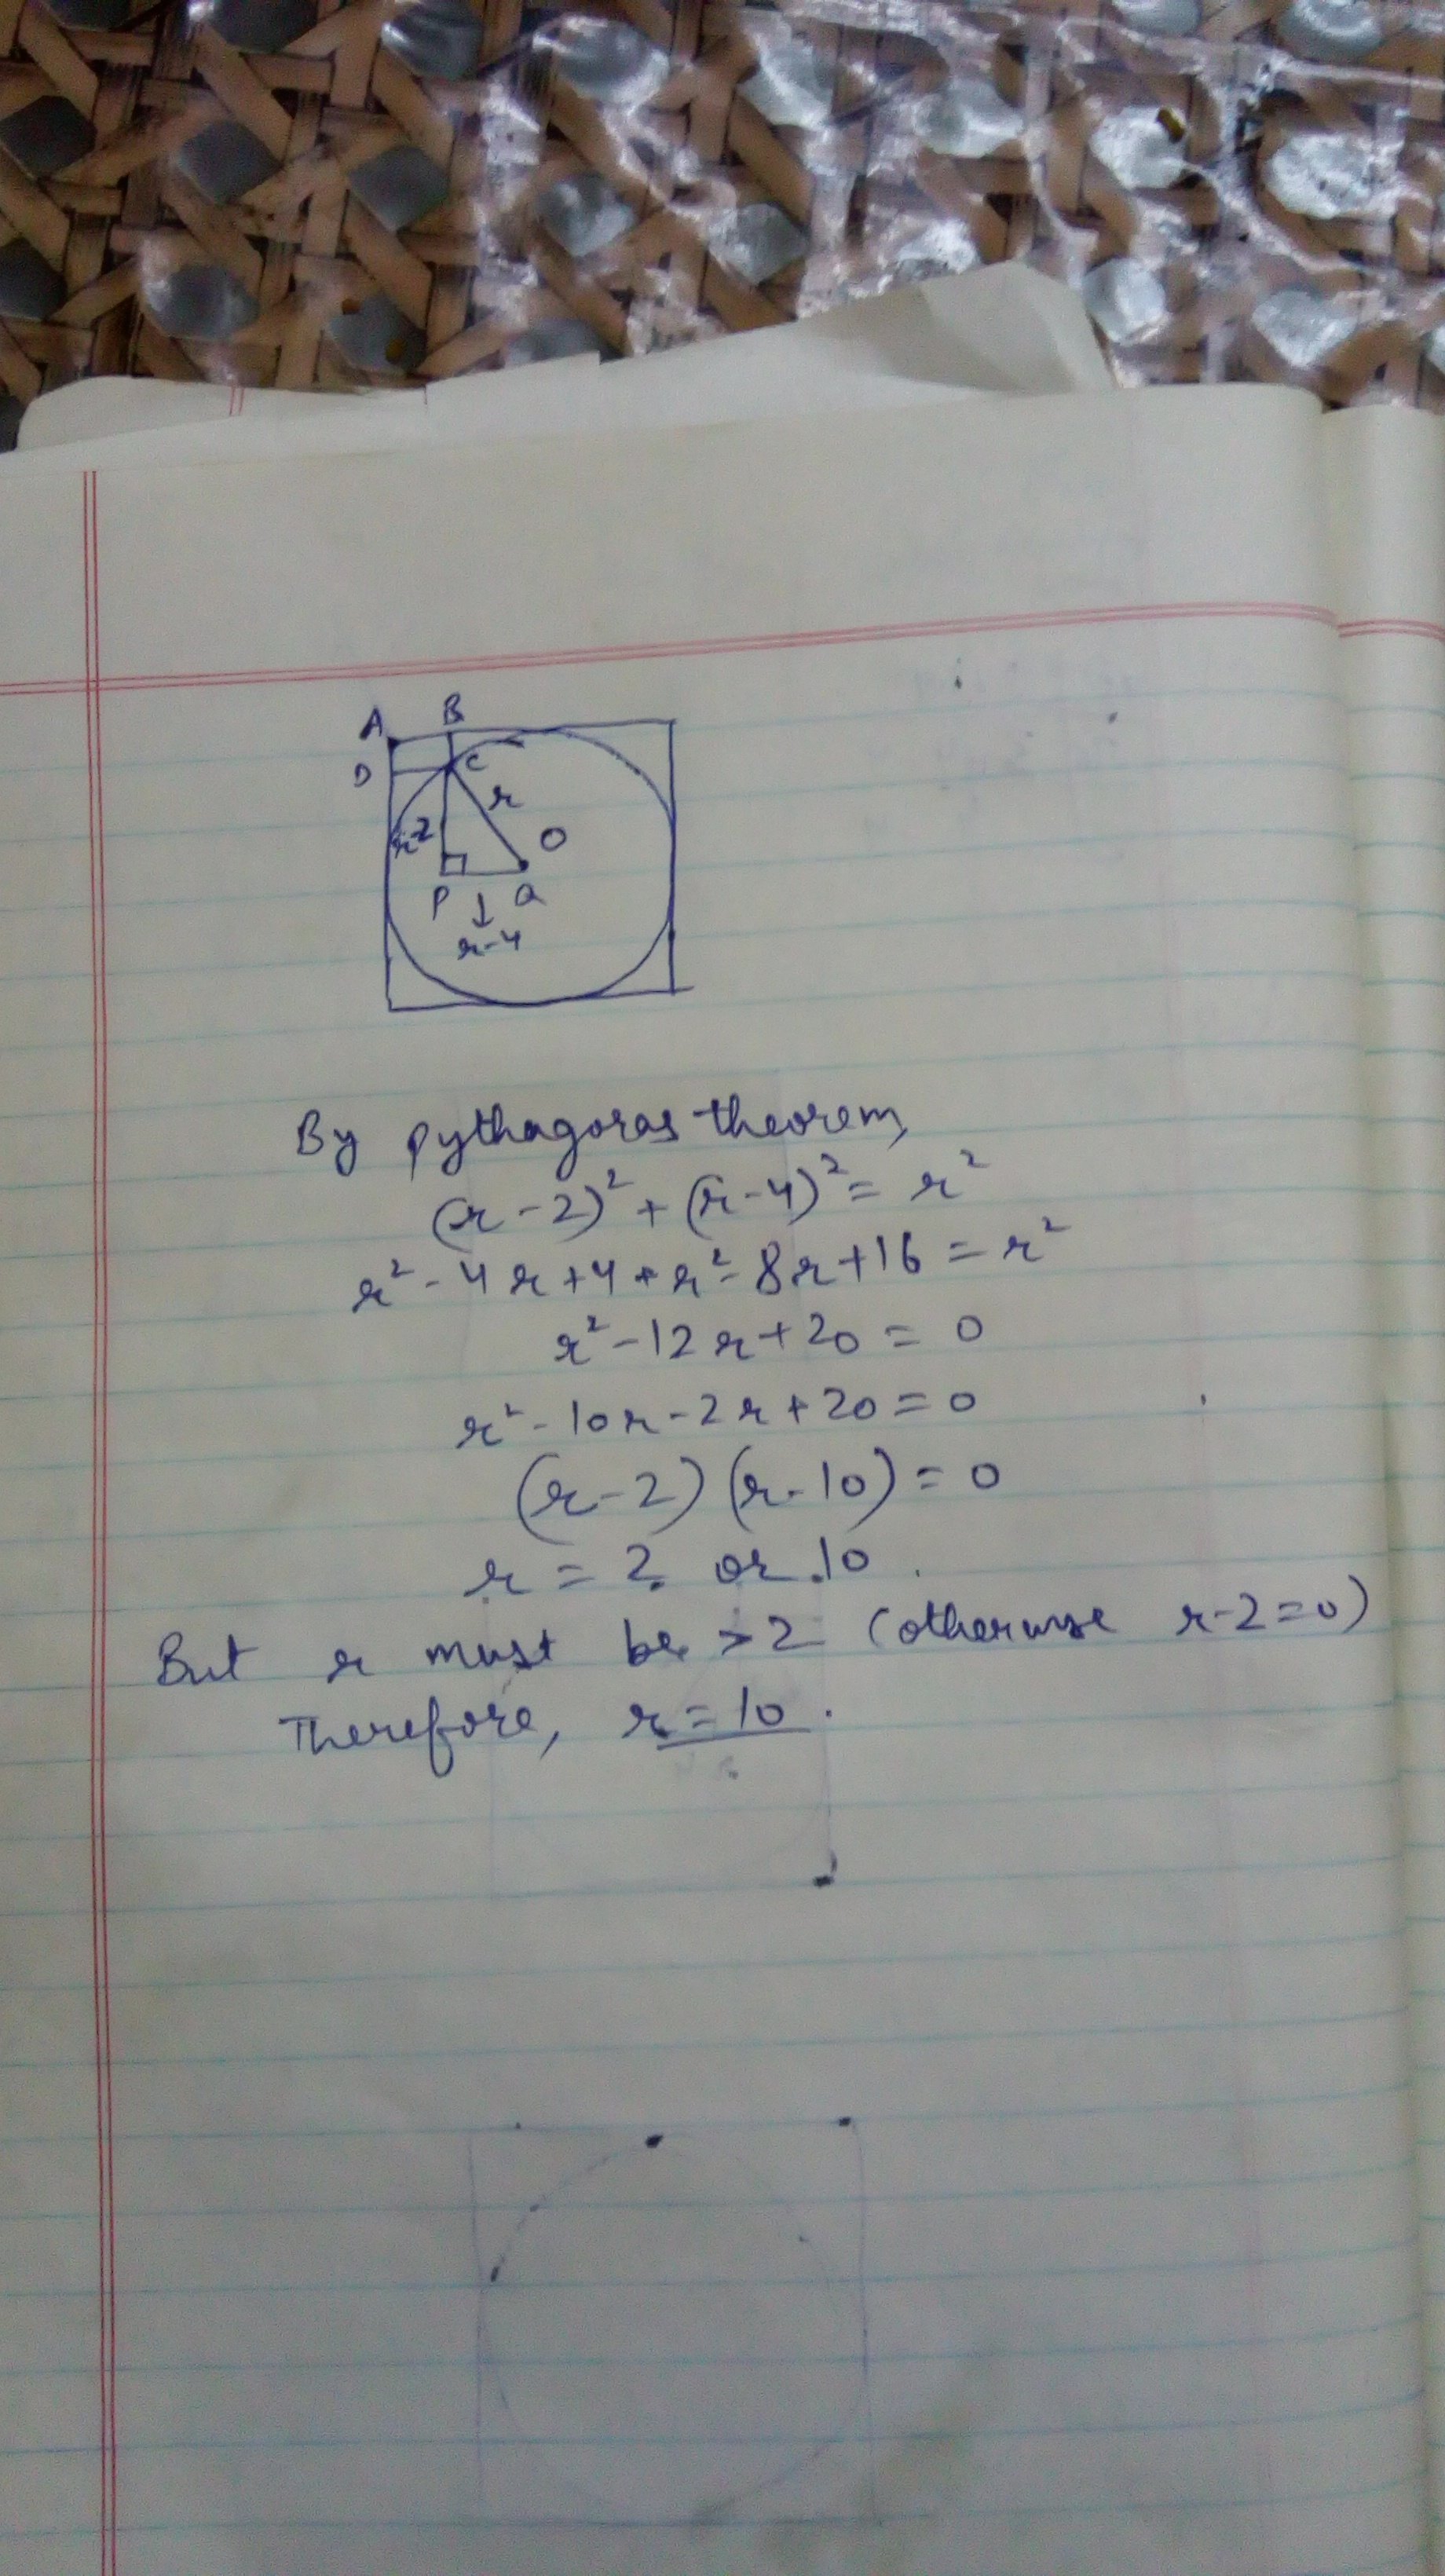 A B
D C
r
r-2 O
P Q
↓
r-4
By pythagoras theorem,
(r-2)² + (r-4)² = r²
r² - 4r + 4 + r² - 8r + 16 = r²
r² - 12r + 20 = 0
r² - 10r - 2r + 20 = 0
(r-2) (r-10) = 0
r = 2 or 10.
But r must be > 2 (otherwise r-2=0)
Therefore, r = 10.